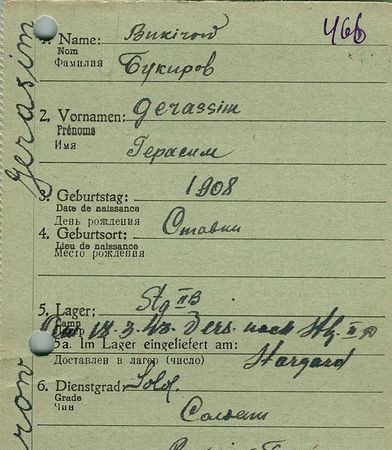 466
1. Name: Bukirow
Nom
Фамилия Букиров
2. Vornamen: Gerassim
Prénoms
Имя Герасим
3. Geburtstag: 1908
Date de naissance
День рождения
4. Geburtsort: Ставки
Lieu de naissance
Место рождения
5. Lager: Stg IIB
Camp
18.3.43. Vers. nach Stg. II D
5a. Im Lager eingeliefert am: Stargard
Доставлен в лагерь (число)
6. Dienstgrad: Sold.
Grade
Чин Солдат
Gerassim
row